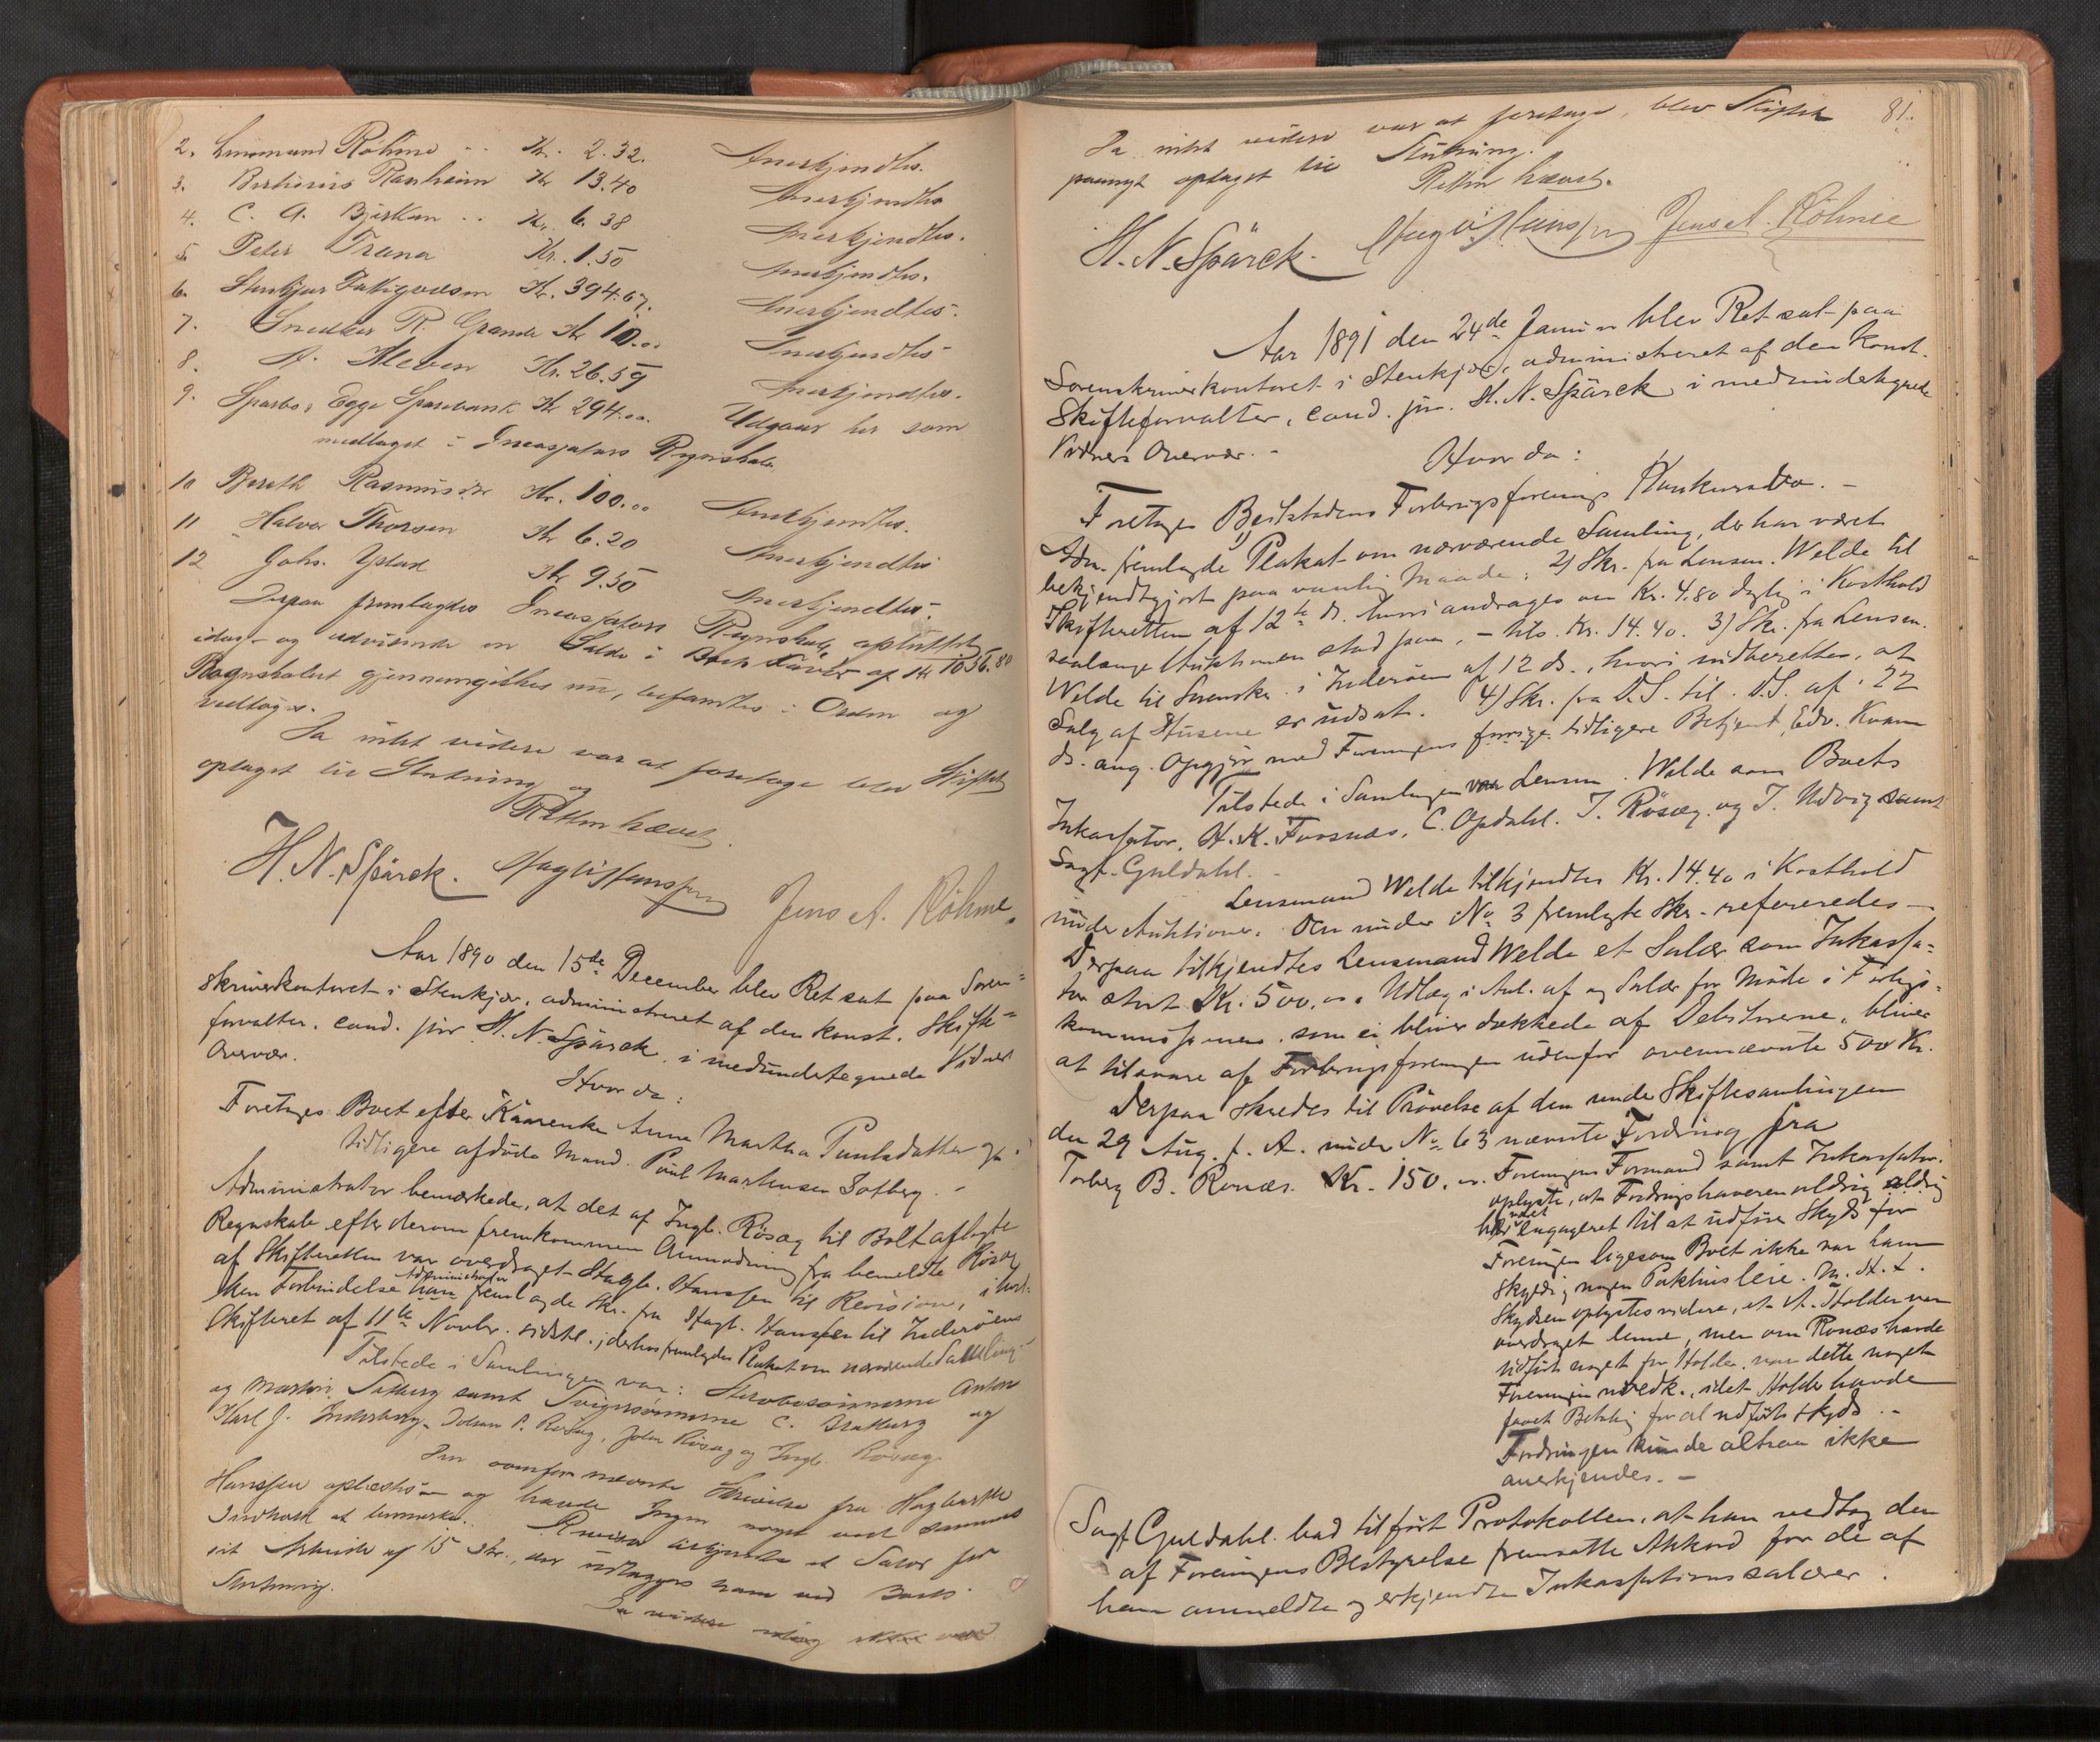 2. Lensmand Röhme .. Kr. 2.32. Anerkjendtes.
3. Bertinius Ranheim Kr 13.40 Anerkjendtes
4. C. A. Bjerkan .. Kr. 6.38 Anerkjendtes.
5. Peter Trana Kr. 1.50 Anerkjendtes.
6. Stenkjær Fattigvæsen Kr. 394.67. Anerkjendtes.
7. Snedker R. Grande Kr 10... Anerkjendtes
8. A. Kleven Kr. 26.59 Anerkjendtes.
9. Sparbo & Egge Sparebank Kr 294... Udgaar her som
medtaget i Incassators Regnskab
10 Bereth Rasmusdtr Kr. 100... Anerkjendtes.
11 Halvor Thorsen Kr 6.20 Anerkjendtes
12 Johs. Ystad Kr 9.50 Anerkjendtes.
Derpaa fremlagdes Incassators Regnskab, afsluttet
idag og udvisende en Saldo i Boets Favør af Kr 1056.80
Regnskabet gjennemgikkes nu, befandtes i Orden og
vedtoges.
Da intet videre var at foretage blev Skiftet
optaget til Slutning og
Retten hævet.
H. N. Spärck. Jens A. Röhme.
Aar 1890 den 15de December blev Ret sat paa Soren=
skriverkontoret i Stenkjær, administreret af den konst. Skifte=
forvalter. cand. jur H. N. Spärck, i medundertegnede Vidners
Overvær.
Hvor da:
Foretoges Boet efter Kaarenke Anne Martha Paulsdatter og
tidligere afdøde Mand. Poul Martinsen Solberg. -
Administrator bemærkede, at det af Ingb. Rösæg til Boet aflagte
Regnskab efter derom fremkommen Anmodning fra bemeldte Rösæg
af Skifteretten var overdraget Hagb. Hanssen til Revision, i hvil-
ken Forbindelse Administrator fremlagde Skr. fra Hagb. Hanssen til Inderöens
Skifteret af 11te Novbr. sidstl.; derhos fremlagdes Plakat om nærværende Samling
Tilstede i Samlingen var: Sterbosönnerne Anton
og Martin Solberg samt Svigersönnerne C. Bratberg og
Karl J. Indersberg, Johan P. Rösæg, John Rösæg og Ingb. Rösæg.
Den ovenfor nævnte Skrivelse fra Hagbarth
Hanssen oplæstes og havde Ingen noget ved sammes
Indhold at bemærke. Revisor tilkjendtes et Salær for
sit Arbeide af 15 Kr., der udlægges ham ved Boets
Slutning.
Da videre idag ikke var
81.
Da intet videre var at foretage, blev Skiftet
paanyt optaget til Slutning.
Retten hævet.
H. N. Spärck. Jens A. Röhme
Aar 1891 den 24de Januar blev Ret sat paa
Sorenskriverkontoret i Stenkjær, administreret af den konst.
Skifteforvalter, cand. jur. H. N. Spärck, i medundertegnede
Vidners Overvær. -
Hvor da:
Foretoges Beitstadens Forbrugsforenings Konkursbo. -
Adm. fremlagde 1) Plakat om nærværende Samling, der har været
bekjendtgjort paa vanlig Maade; 2) Skr. fra Lensm. Welde til
Skifteretten af 12te ds. hvori andrages om Kr. 4.80 daglig i Kosthold
saalænge Auktionen stod paa, - tils. Kr. 14.40. 3) Skr. fra Lensm.
Welde til Svenskr. i Inderöen af 12 ds., hvori indberettes, at
Salg af Husene er udsat. 4) Skr. fra D.S. til D.S. af 22
ds. ang. Opgjör med Foreningens forrige tidligere Betjent, Edv. Kvam
Tilstede i Samlingen var Lensm. Welde som Boets
Inkassator, H. K. Fossnæs, C. Opdahl. I. Rösæg og I. Udvig samt
Sagf. Guldahl. -
Lensmand Welde tilkjendtes Kr. 14.40 i Kosthold
under Auktionen. Den under No 3 fremlagte Skr. refereredes -
Derpaa tilkjendtes Lensmand Welde et Salær som Inkassa=
tor stort Kr. 500... Udlæg i Anl. af og Salær for Möde i Forligs=
kommissionen, som ei bliver dækkede af Debitorerne, bliver
at tilsvare af Forbrugsforeningen udenfor ovennævnte 500 Kr.
Derpaa skredes til Prövelse af den under Skiftesamlingen
den 29 Aug. f. A. under No 63 nævnte Fordring fra
Torberg B. Ronæs. Kr. 150... Foreningens Formand samt Inkassator.
oplyste, at Fordringshaveren aldrig aldrig
har været engageret til at udföre Skyds for
Foreningen ligesom Boet ikke var ham
skyldig nogen Pakhusleie. M. H. t.
Skydsen oplystes videre, at A. Holder var
overdraget denne, men om Ronæs havde
udfört noget for Holder, var dette noget
Foreningen uvedk., idet Holder havde
faaet Betaling for al udfört Skyds. -
Fordringen kunde altsaa ikke
anerkjendes. -
Sagf. Guldahl. bad tilfört Protokollen, at han vedtog den
af Foreningens Bestyrelse fremsatte Akkord for de af
ham anmeldte og erkjendte Inkassationssalærer.